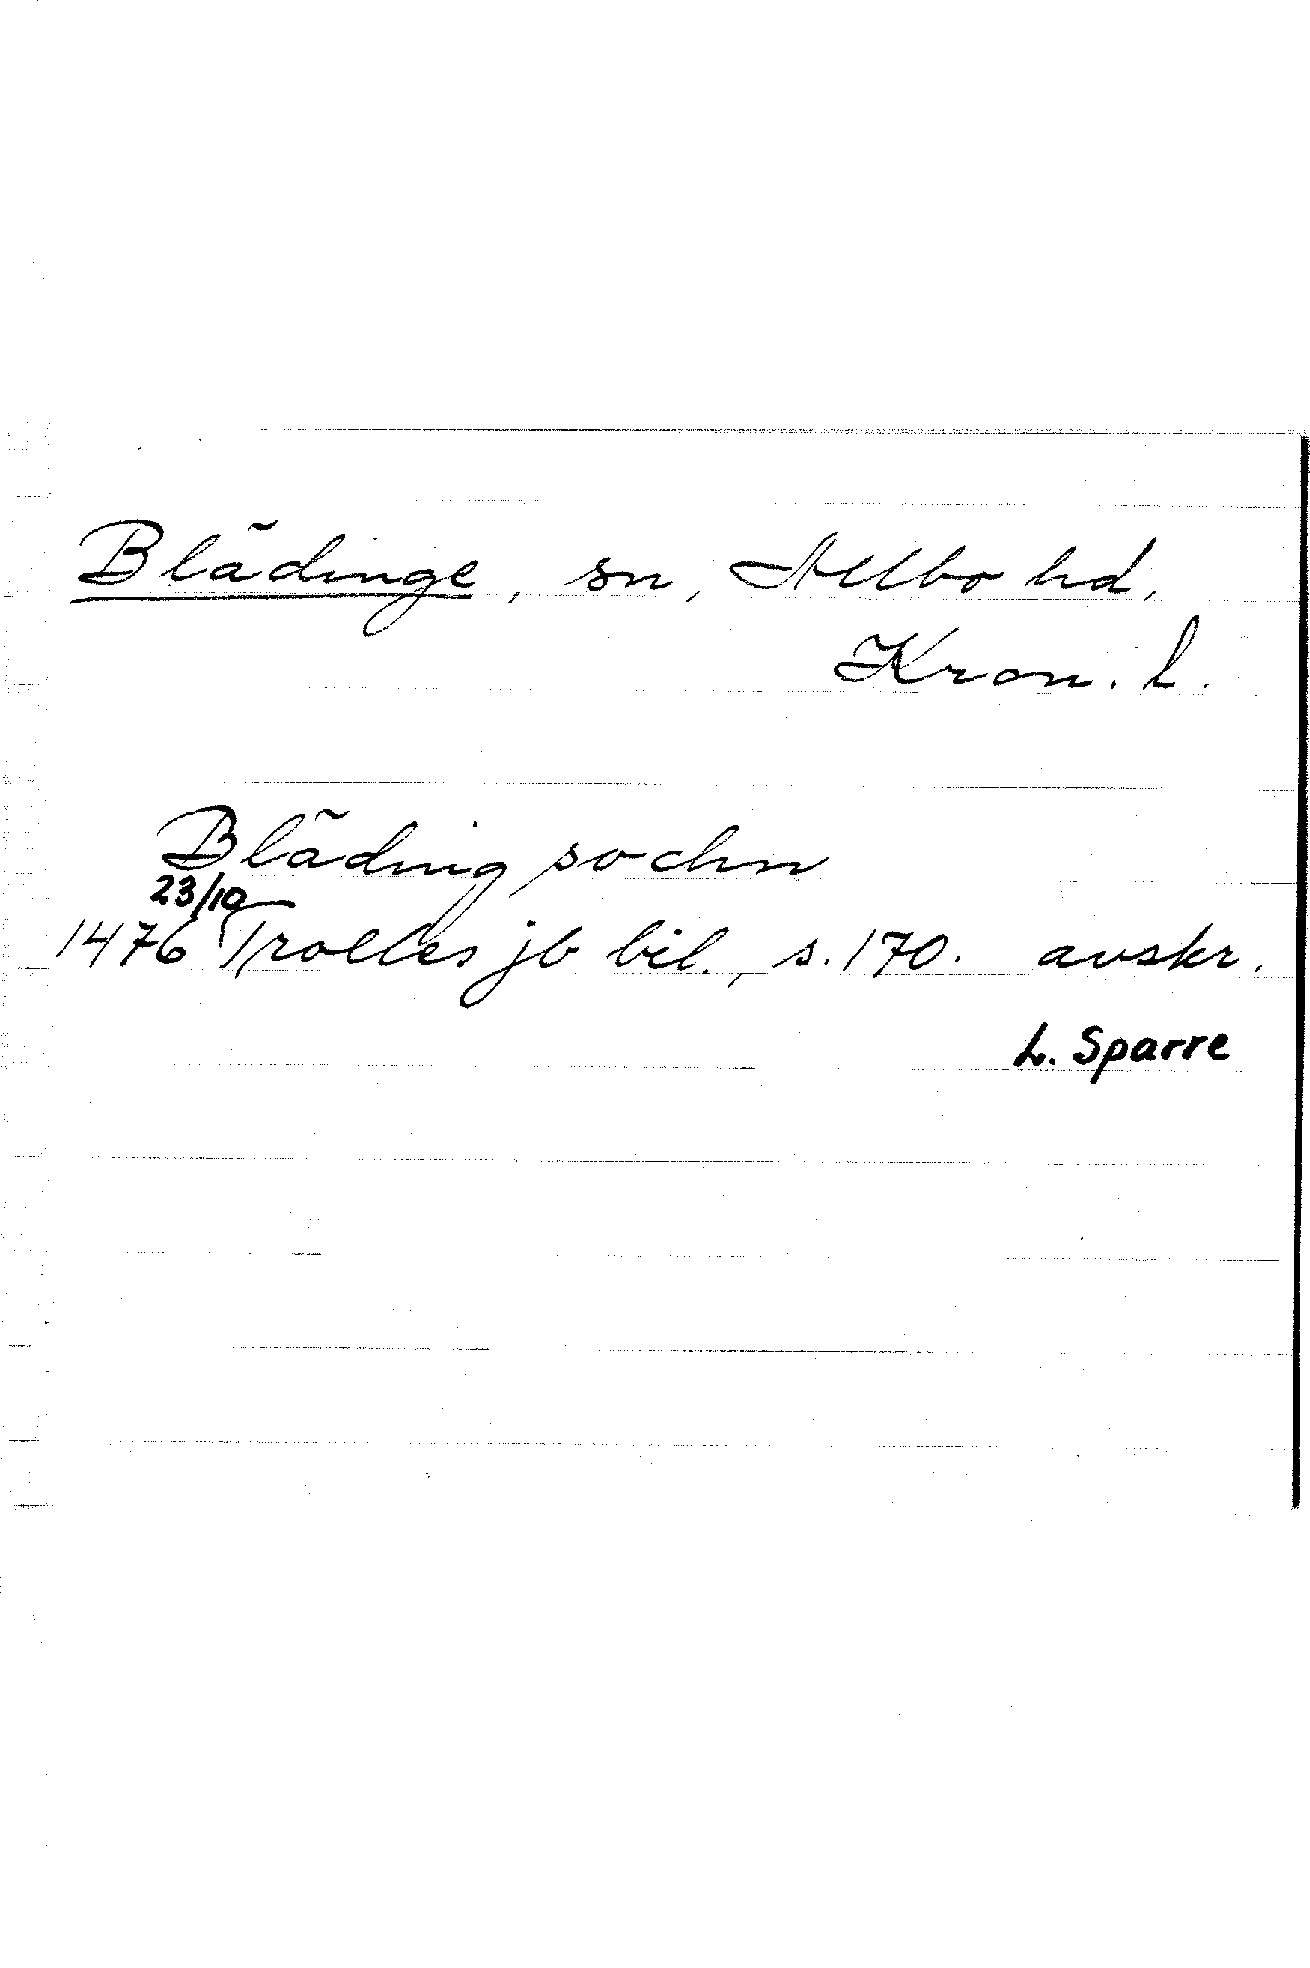 Blädinge, sn, Allbo hd,
Kron. l.
Bläding sochn
23/10
1476 Trolles jb bil., s. 170. avskr.
L. Sparre